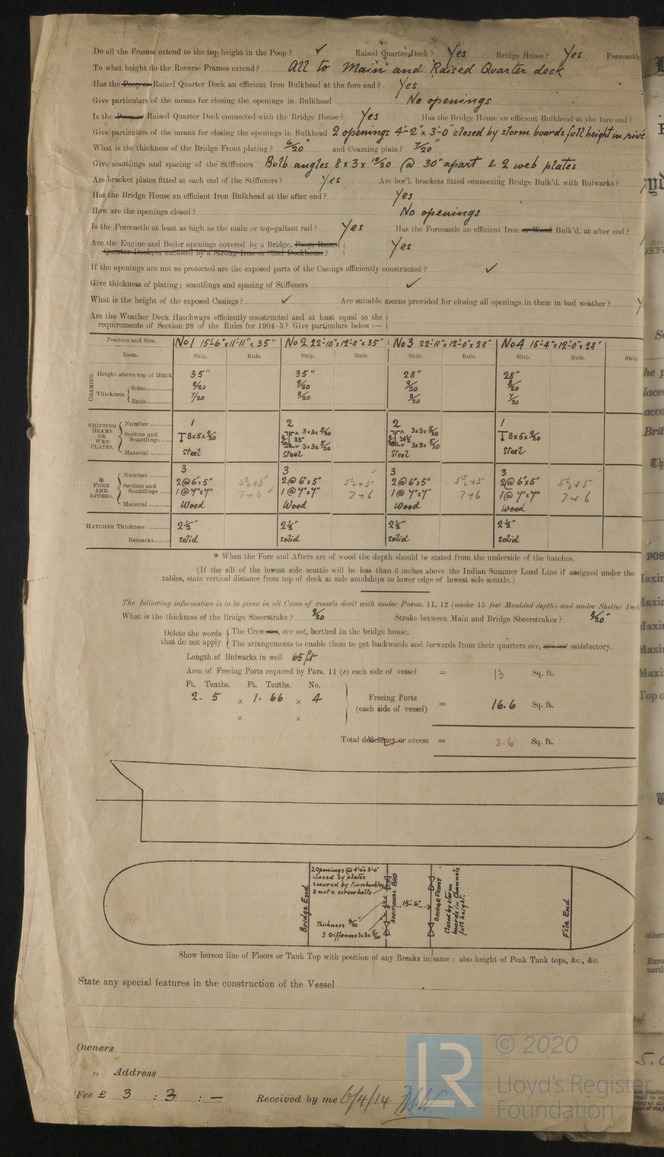 Do all the Frames extend to the top height in the Poop? ✓ Raised Quarter Deck? Yes Bridge House? Yes Forecastle
To what height do the Reverse Frames extend? All to Main and Raised Quarter deck
Has the Poop or Raised Quarter Deck an efficient Iron Bulkhead at the fore end? Yes
Give particulars of the means for closing the openings in Bulkhead No openings
Is the Poop or Raised Quarter Deck connected with the Bridge House? Yes Has the Bridge House an efficient Bulkhead at the fore end?
Give particulars of the means for closing the openings in Bulkhead 2 openings 4'-2" x 3'-0" closed by storm boards full height in
What is the thickness of the Bridge Front plating? /20 and Coaming plate? /20
Give scantlings and spacing of the Stiffeners Bulb angles 8 x 3 x /20 @ 30" apart & 2 web plates
Are bracket plates fitted at each end of the Stiffeners? Yes Are hor'l. brackets fitted connecting Bridge Bulk'd. with Bulwarks?
Has the Bridge House an efficient Iron Bulkhead at the after end? Yes
How are the openings closed? No openings
Is the Forecastle at least as high as the main or top-gallant rail? Yes Has the Forecastle an efficient Iron or Wood Bulk'd, at after end?
Are the Engine and Boiler openings covered by a Bridge, Poop, Raised
Quarter Deck, or enclosed by a Strong Iron or Steel Deckhouse? Yes
If the openings are not so protected are the exposed parts of the Casings efficiently constructed? ✓
Give thickness of plating; scantlings and spacing of Stiffeners ✓
What is the height of the exposed Casings? ✓ Are suitable means provided for closing all openings in them in bad weather?
Are the Weather Deck Hatchways efficiently constructed and at least equal to the
requirements of Section 28 of the Rules for 1904-5? Give particulars below:—
Position and Size. No 1 15'-6" x 11'-11" x 35" No 2 22'-10" x 12'-0" x 35" No 3 22'-11" x 12'-0" x 28" No 4 15'-4" x 12'-0" x 28"
Item. Ship. Rule. Ship. Rule. Ship. Rule. Ship. Rule. Ship
COAMING Height above top of DECK 35" 35" 28" 28"
Thickness Sides
Ends
SHIFTING BEAMS OR WEB PLATES. Number 1 2 2 1
Section and Scantlings
Material Steel Steel Steel Steel
* FORE AND AFTERS. Number 3 3 3 3
Section and Scantlings 2 @ 6" x 5" 2 @ 6" x 5" 2 @ 6" x 5" 2 @ 6" x 5"
1 @ 7" x 7" 7 x 6 1 @ 7" x 7" 7 x 6 1 @ 7" x 7" 7 x 6 1 @ 7" x 7" 7 x 6
Material Wood Wood Wood Wood
HATCHES Thickness 2½" 2½" 2½" 2½"
Remarks solid solid solid solid
* When the Fore and Afters are of wood the depth should be stated from the underside of the hatches.
(If the sill of the lowest side scuttle will be less than 6 inches above the Indian Summer Load Line if assigned under the
tables, state vertical distance from top of deck at side amidships to lower edge of lowest side scuttle.)
The following information is to be given in all Cases of vessels dealt with under Paras. 11, 12 (under 15 feet Moulded depth) and under Shelter Deck
What is the thickness of the Bridge Sheerstrake? /20 Strake between Main and Bridge Sheerstrakes? /20
Delete the words that do not apply
The Crew are, are not, berthed in the bridge house.
The arrangements to enable them to get backwards and forwards from their quarters are, are not satisfactory.
Length of Bulwarks in well 65 ft
Area of Freeing Ports required by Para. 11 (e) each side of vessel = 13 Sq. ft.
Ft. Tenths. Ft. Tenths. No.
2. 5 × 1. 66 × 4 Freeing Ports (each side of vessel) = 16.6 Sq. ft.
× ×
Total deficiency or excess = 3.6 Sq. ft.
Bridge End
2 Openings @ 4'-0" x 3'-0"
closed by plates
secured by Turnbuckles
& not screw bolts
Thickness /20
ADDITIONAL BHD
15'-6"
BRIDGE FRONT
Closed by storm
boards in channels
full height.
F'cle End
Show hereon line of Floors or Tank Top with position of any Breaks in same; also height of Peak Tank tops, &c., &c.
State any special features in the construction of the Vessel
Owners
„ Address
Fee £ 3 : 3 : — Received by me 6/4/14
© 2020
LR
Lloyd's Register
Foundation